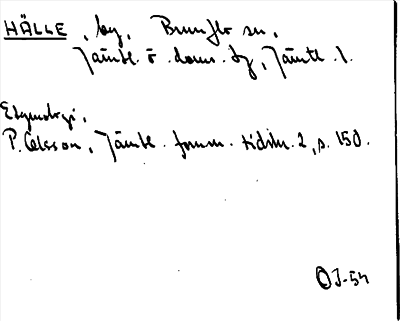 HÄLLE, by, Brunflo sn,
Jämtl. ö. doms. tg, Jämtl. l.
Etymologi.
P. Olsson, Jämtl. fornm. tidskr. 2, s. 150.
OJ-54